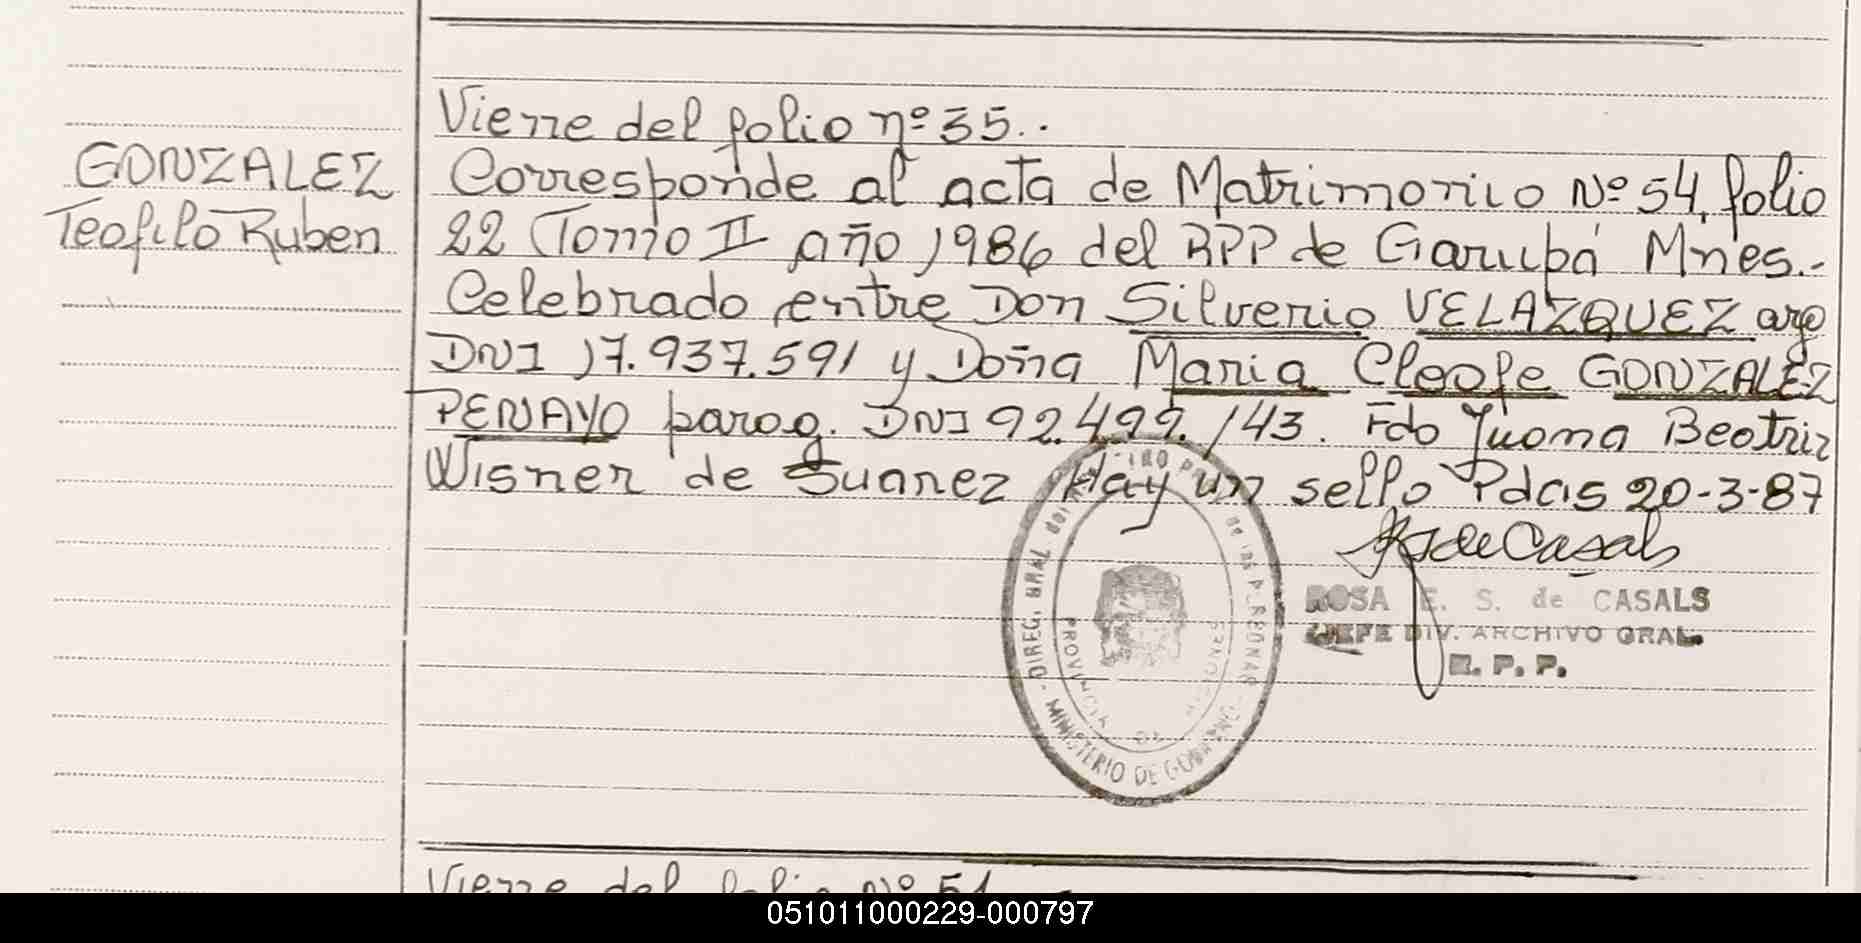 GONZALEZ
Teofilo Ruben
Viene del folio nº 35..
Corresponde al acta de Matrimonio Nº 54, folio
22 Tomo II año 1986 del RPP de Garupá Mnes.-
Celebrado entre Don Silverio VELAZQUEZ arg
DNI 17.937.591 y Doña Maria Cleofe GONZALEZ
PENAYO parag. DNI 92.499.143. Fdo Juana Beatriz
Wisner de Suarez Hay un sello Pdas 20-3-87
de Casals
ROSA E. S. de CASALS
JEFE DIV. ARCHIVO GRAL.
R. P. P.
DIREG. GRAL del DE LAS PERSONAS
MINISTERIO DE GOBIERNO
PROVINCIA DE
Viene del folio Nº 51
051011000229-000797